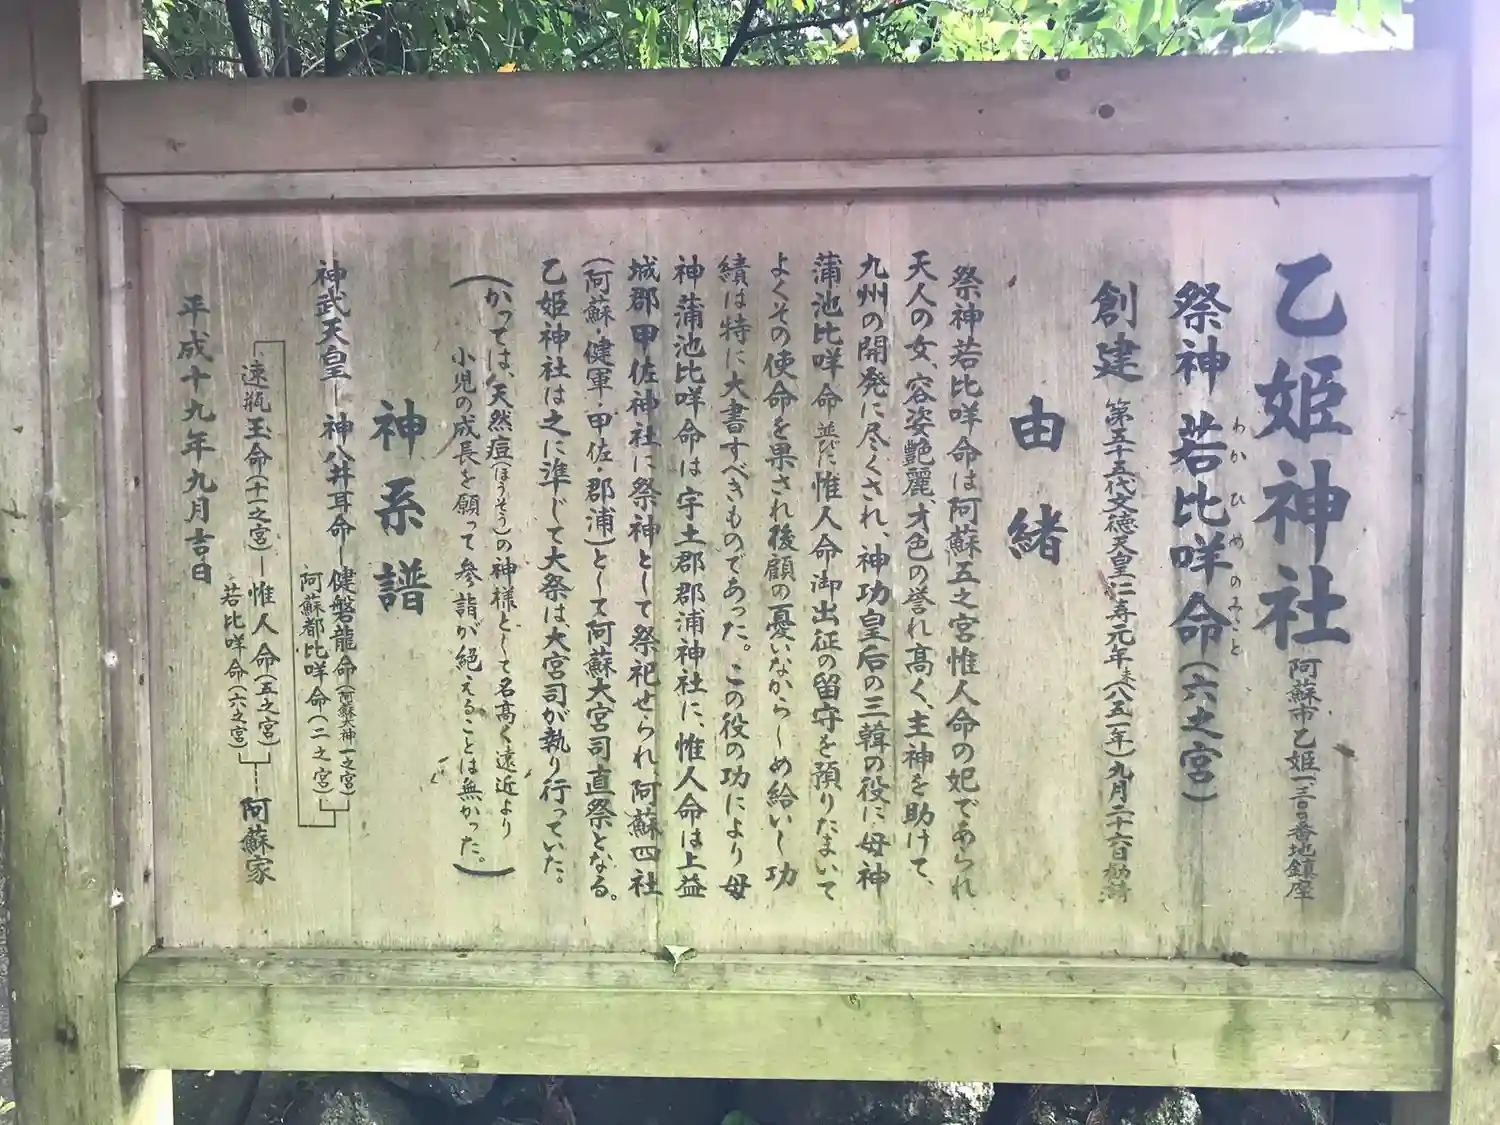 乙姫神社 阿蘇市乙姫一三吾番地鎮座
わかひめのみこと
祭神 若比咩命(六之宮)
創建 第五十五代文徳天皇仁寿元年未(八五一年)九月二十六日勧請
由緒
祭神若比咩命は阿蘇五之宮惟人命の妃であられ
天人の女、容姿艶麗、才色の誉れ高く、主神を助けて、
九州の開発に尽くされ、神功皇后の三韓の役に母神
蒲池比咩命並びに惟人命御出征の留守を預りたまいて
よくその使命を果され後顧の憂いなからしめ給いし功
績は特に大書すべきものであった。この役の功により母
神蒲池比咩命は宇土郡郡浦神社に、惟人命は上益
城郡甲佐神社に祭神として祭祀せられ、阿蘇四社
(阿蘇・健軍・甲佐・郡浦)として阿蘇大宮司直祭となる。
乙姫神社は之に準じて大祭は、大宮司が執り行っていた。
(かっては、天然痘(ほうそう)の神様として名高く遠近より
小児の成長を願って参詣が絶えることは無かった。)
神系譜
神武天皇―神八井耳命―健磐龍命(阿蘇大神一之宮)
阿蘇都比咩命(二之宮)
速瓶玉命(十一之宮)―惟人命(五之宮)
若比咩命(六之宮)
阿蘇家
平成十九年九月吉日